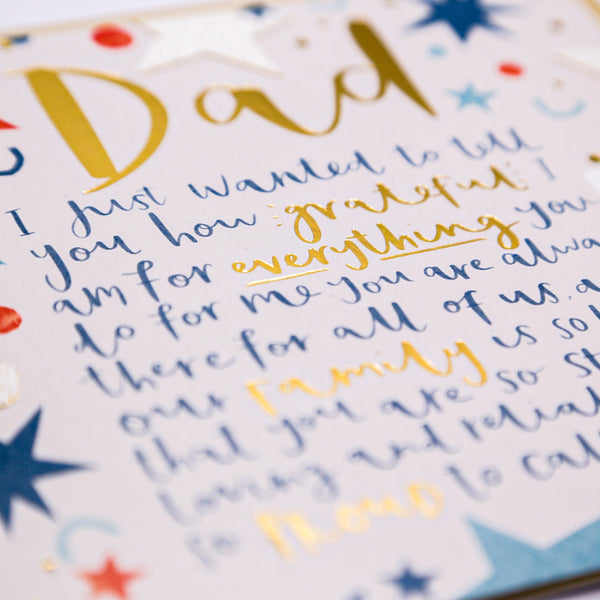 Dad
I just wanted to tell
you how grateful I
am for everything you
do for me. You are alwa
there for all of us a
our family is so
that you are so st
loving and relia
so PROUD to call